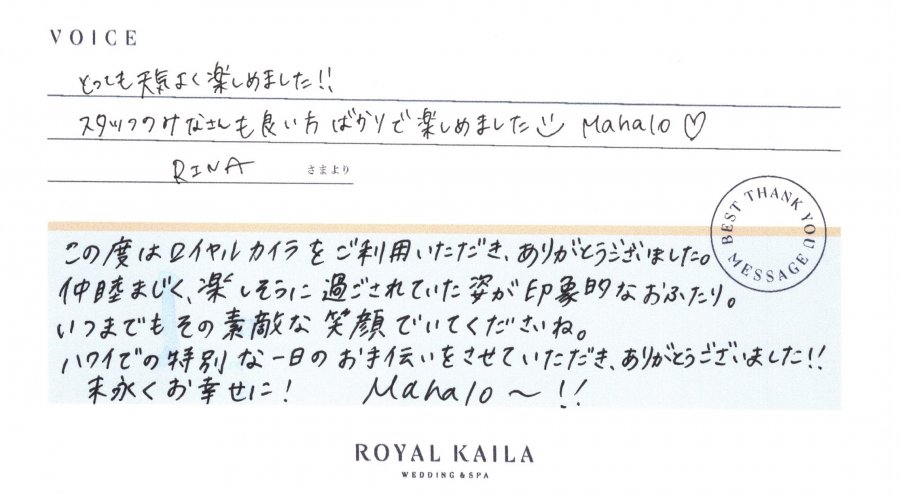 VOICE
とっても天気よく楽しめました!!
スタッフのみなさんも良い方ばかりで楽しめました Mahalo♡
RINA さまより
BEST THANK YOU MESSAGE
この度はロイヤルカイラをご利用いただき、ありがとうございました。
仲睦まじく、楽しそうに過ごされていた姿が印象的なおふたり。
いつまでもその素敵な笑顔でいてくださいね。
ハワイでの特別な一日のお手伝いをさせていただき、ありがとうございました!!
末永くお幸せに! Mahalo〜!!
ROYAL KAILA
WEDDING & SPA